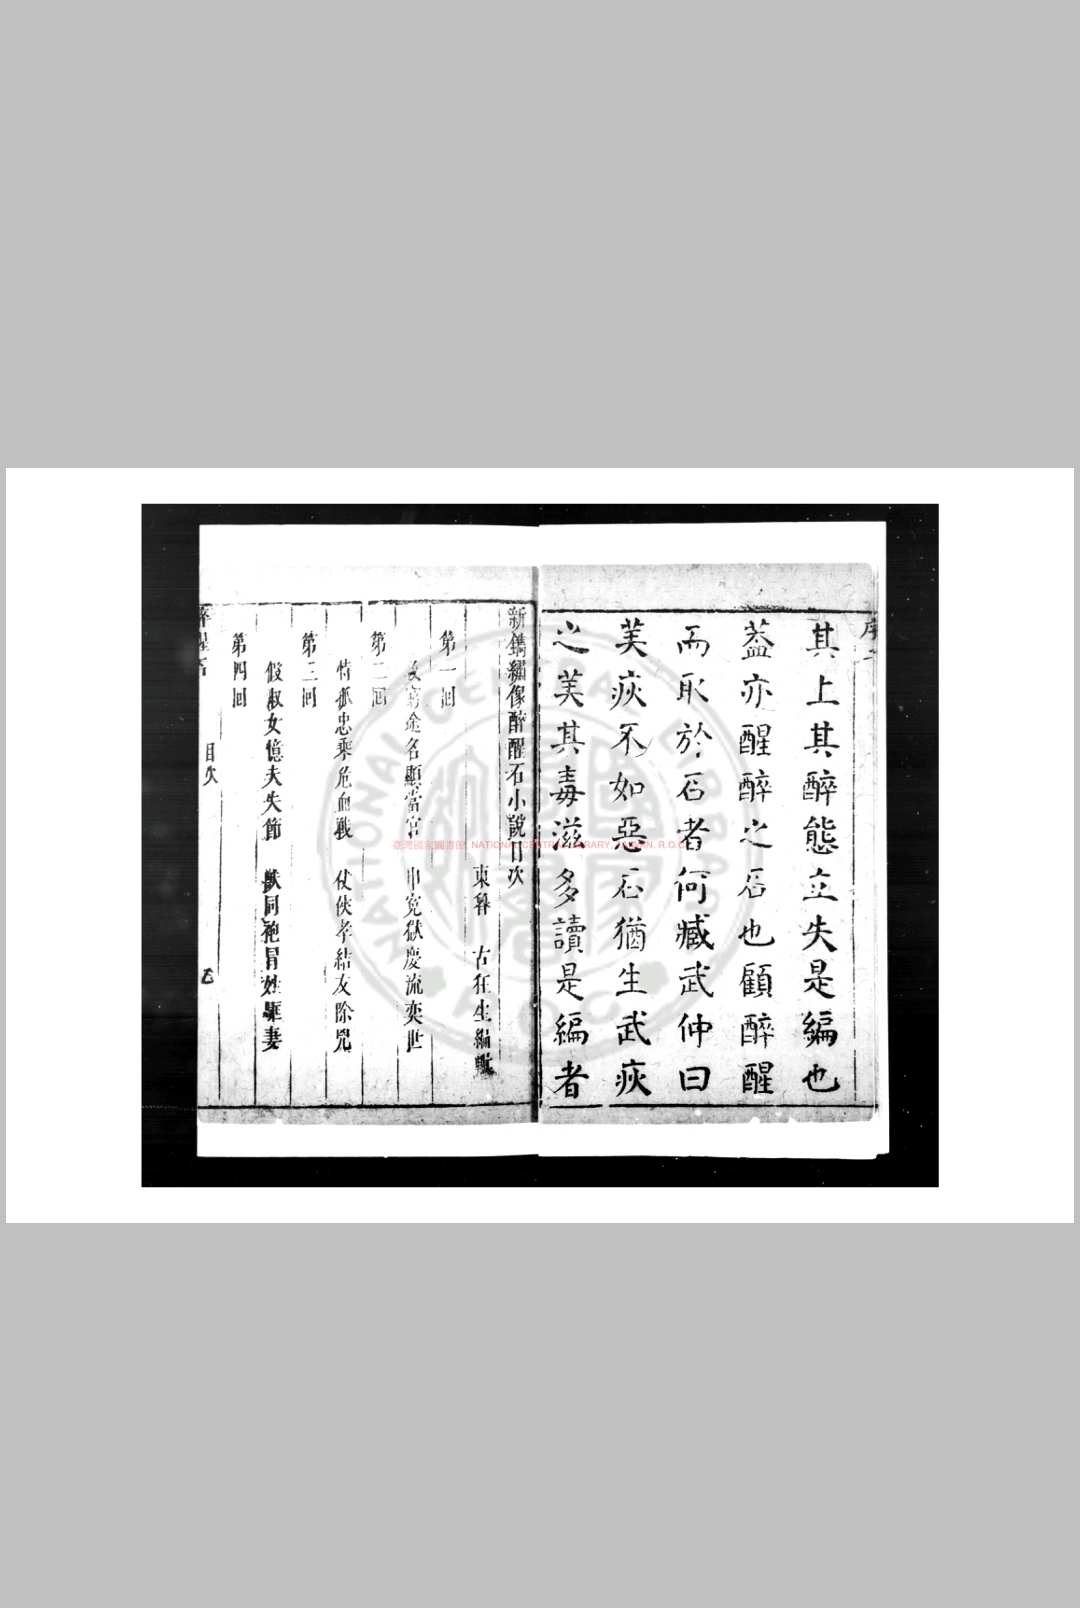 序二
其上其醉態立失是編也
葢亦醒醉之石也顧醉醒
而取於石者何臧武仲曰
美疢不如惡石猶生武疢
之美其毒滋多讀是編者
新鐫繡像醉醒石小說目次
東魯 古狂生編輯
第一回
救窮途名顯當官 申冤獄慶流奕世
第二回
恃孤忠乘危血戰 仗俠孝結友除兇
第三回
假淑女憶夫失節 獸同袍冒姓誆妻
第四回
醉醒石 目次
臺灣國家圖書館 NATIONAL CENTRAL LIBRARY, TAIWAN, R.O.C
NATIONAL CENTRAL LIBRARY R.O.C.